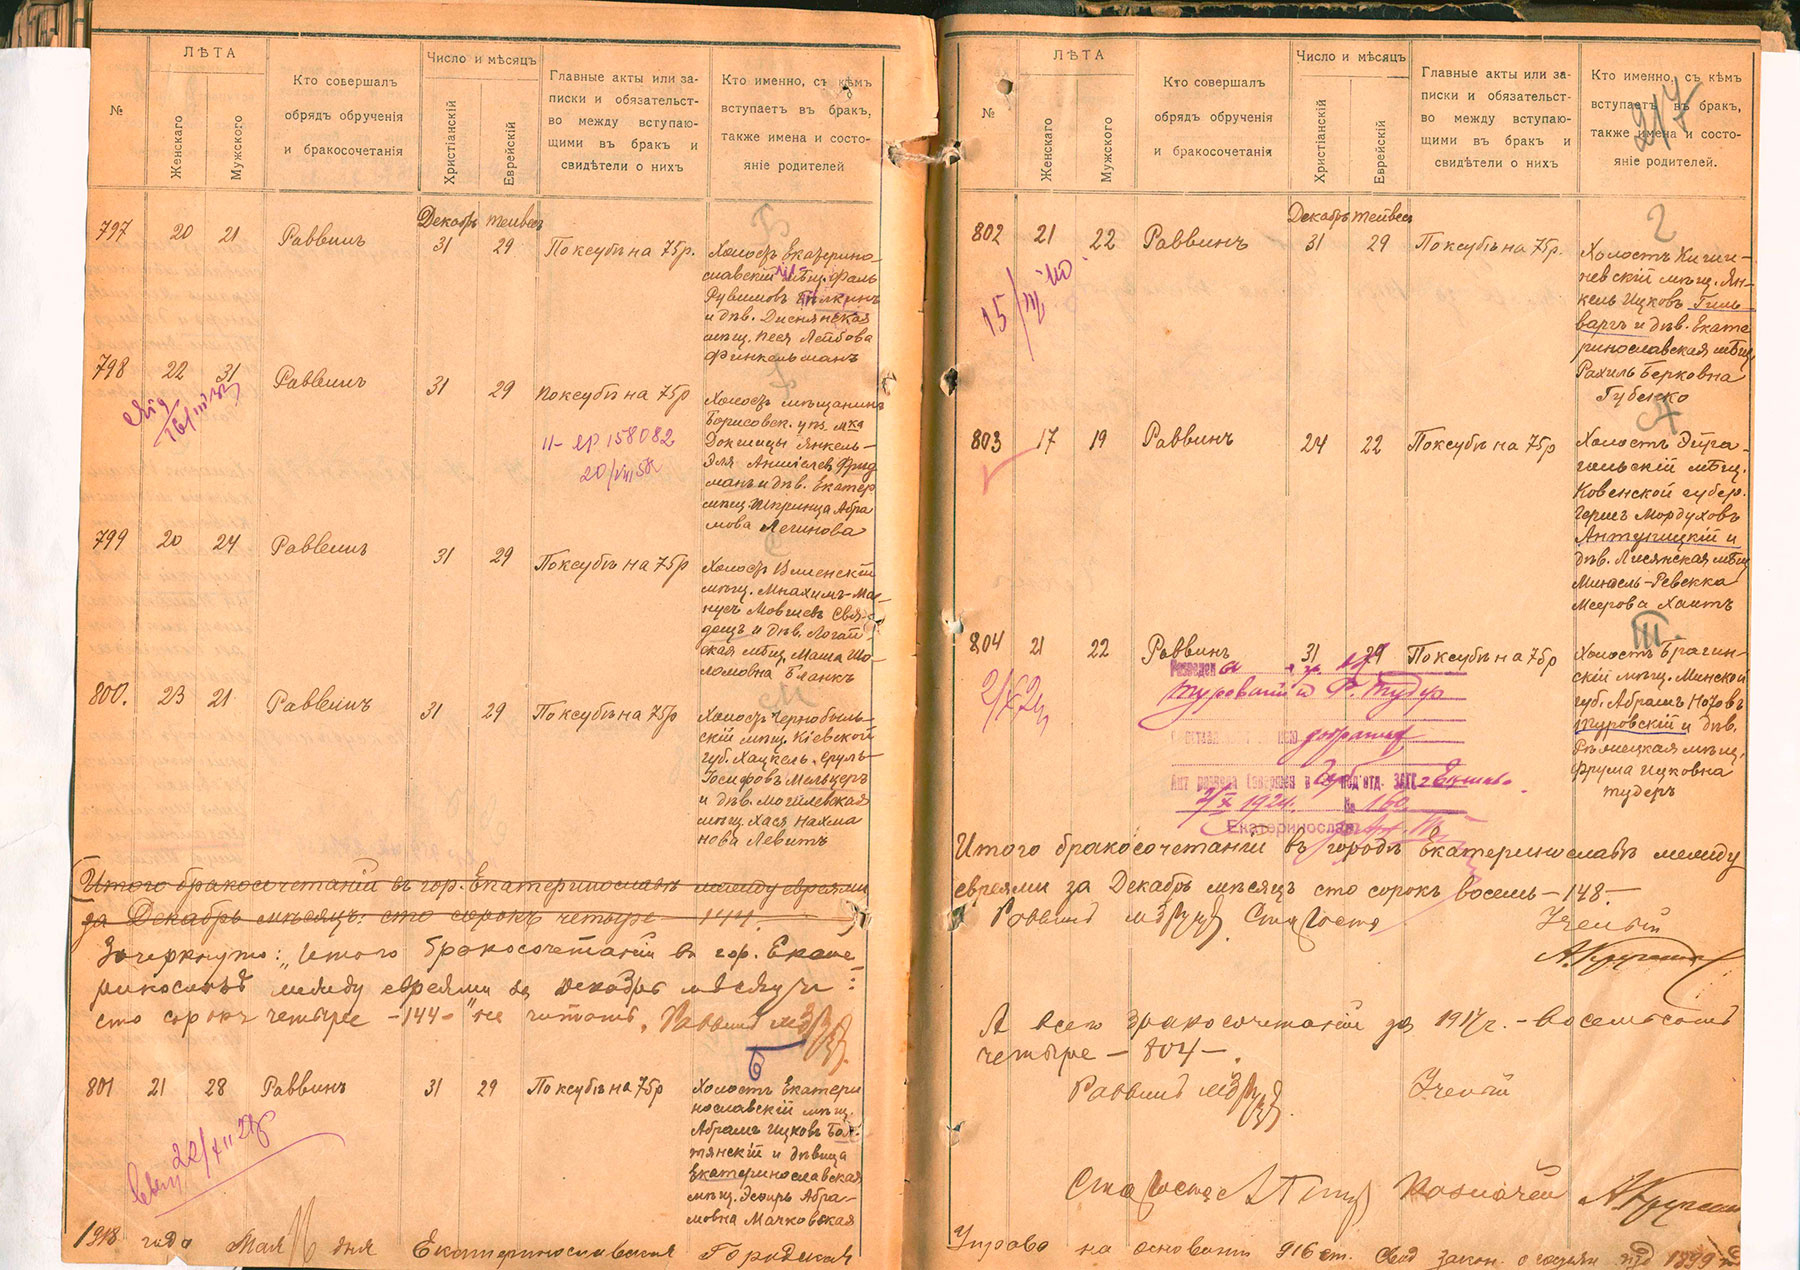 ЛѢТА
№
Женскаго
Мужского
Кто совершалъ
обрядъ обрученія
и бракосочетанія
Число и мѣсяцъ
Христіанскій
Еврейскій
Главные акты или за-
писки и обязательст-
во между вступаю-
щими въ бракъ и
свидѣтели о нихъ
Кто именно, съ кѣмъ
вступаетъ въ бракъ,
также имена и состо-
яніе родителей
Декабрь Тейвесъ
797 20 21 Раввинъ 31 29 По ксубѣ на 75р.
Холост. Екатерино-
славскій мѣщ.
Рувимовъ
и дѣв. Диснянская
мѣщ. Песя Лейбова
Финкельманъ
798 22 31 Раввинъ 31 29 По ксубѣ на 75р
16/III
11- ЕР 158082
20/VIII 58
Холост. мѣщанинъ
Борисовск. у. мка
Докшицы Янкель-
Эля Аншелев Фрид
манъ и дѣв. Екатер
мѣщ. Шпринца Абра
мова Легинова
799 20 24 Раввинъ 31 29 По ксубѣ на 75р
Холост. Виленскій
мѣщ. Мнахимъ-Ма-
нусъ Мовшев Свя-
дощъ и дѣв. Логай-
ская мѣщ. Маша Шо-
ломовна Бланкъ
800. 23 21 Раввинъ 31 29 По ксубѣ на 75р
Холост. Чернобыль-
скій мѣщ. Кіевской
губ. Хацкель-Сруль
Іосифовъ Мельцеръ
и дѣв. Могилевская
мѣщ. Хася Нахма
нова Левитъ
Итого бракосочетаній въ гор. Екатеринославѣ между евреями
за Декабрь мѣсяцъ: сто сорокъ четыре 144.
Зачеркнуто: „Итого бракосочетаній въ гор. Екате
ринославѣ между евреями за декабрь мѣсяцъ:
сто сорокъ четыре -144-" не читать. Раввинъ
6
801 21 28 Раввинъ 31 29 По ксубѣ на 75р
22/XII 28
Холостъ Екатери
нославскій мѣщ.
Абрамъ Ицковъ Бал-
тянскій и дѣвица
Екатеринославская
мѣщ. Эсфирь Абра-
мовна Мачковская
1918 года Мая 16 дня Екатеринославская Городская
ЛѢТА
№
Женскаго
Мужского
Кто совершалъ
обрядъ обрученія
и бракосочетанія
Число и мѣсяцъ
Христіанскій
Еврейскій
Главные акты или за-
писки и обязательст-
во между вступаю-
щими въ бракъ и
свидѣтели о нихъ
Кто именно, съ кѣмъ
вступаетъ въ бракъ,
также имена и состо-
яніе родителей.
217
Декабрь Тейвесъ
802 21 22 Раввинъ 31 29 По ксубѣ на 75р.
Холостъ Кишин-
невскій мѣщ. Ян-
кель Ицковъ Гиль
варгъ и дѣв. Екате
ринославская мѣщ.
Рахиль Берковна
Губенко
803 17 19 Раввинъ 24 22 По ксубѣ на 75р
Холостъ Эйра-
гольскій мѣщ.
Ковенской губер.
Гершъ Мордуховъ
Антушицкій и
дѣв. Лисянская мѣщ
Миндель-Ревекка
Меерова Хаитъ
III
804 21 22 Раввинъ 31 29 По ксубѣ на 75р
Холостъ Брагин-
скій мѣщ. Минской
губ. Абрамъ Нохов.
Туровскій и дѣв.
Рѣчицкая мѣщ.
Фрума Ицковна
Тудеръ
Разведен
Туровский и Ф. Тудер
добрачная
Акт развода совершен в Губ под'отд. ЗАГС
2/X 1924. № 160
Екатеринослав
Итого бракосочетаній въ городѣ Екатеринославѣ между
евреями за Декабрь мѣсяцъ сто сорокъ восемь - 148.-
Раввинъ Староста Ученый
А всего бракосочетаній за 1917г. - восемьсотъ
четыре - 804 -.
Раввинъ Ученый
Староста Казначей
Управа на основаніи 916 ст. Свод закон. о сост. изд 1899 г